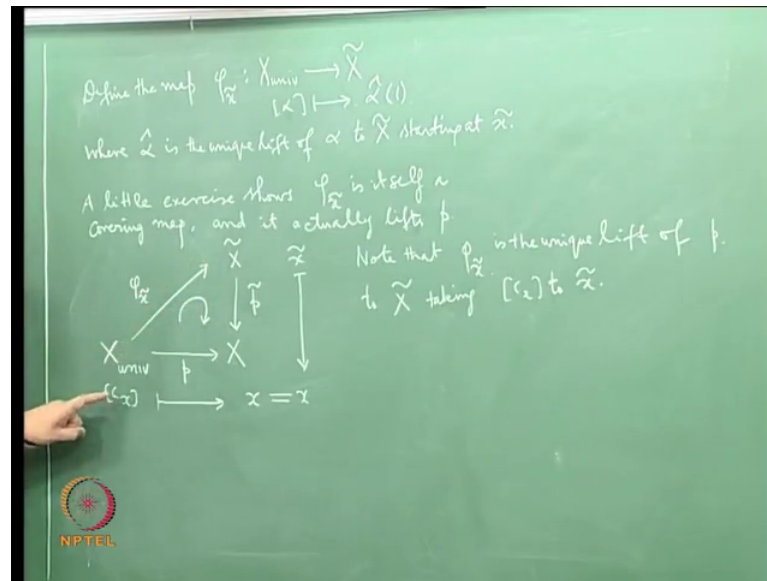 Define the map φ_x̃ : X_univ ⟶ X̃
[α] ⟼ α̂(1)
where α̂ is the unique lift of α to X̃ starting at x̃.
A little exercise shows φ_x̃ is itself a
covering map, and it actually lifts p.
X̃ x̃
φ_x̃ p̃
X_univ ⟶ X
p
[c_x] ⟼ x = x
Note that φ_x̃ is the unique lift of p.
to X̃ taking [c_x] to x̃.
NPTEL